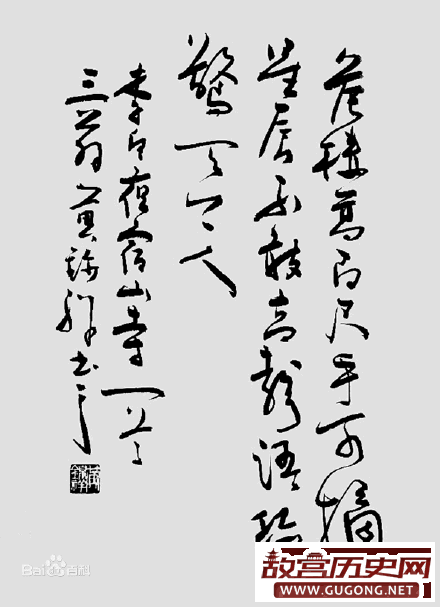 危樓高百尺手可摘
星辰不敢高聲語恐
驚天上人
李白夜宿山寺一首
三翁黄錦祥书
Bai百科
故宫历史网
WWW.GUGONG.NET